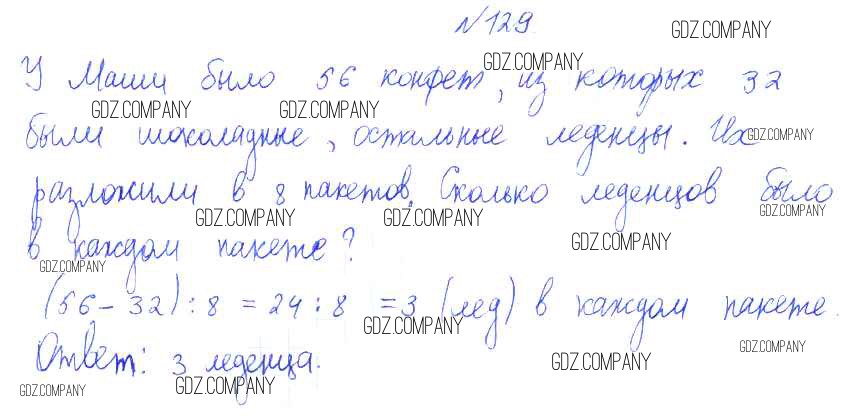 №129. GDZ.COMPANY
У Маши было 56 конфет, из которых 32 GDZ.COMPANY
GDZ.COMPANY GDZ.COMPANY
были шоколадные, остальные леденцы. Их GDZ.COMPANY
разложили в 8 пакетов. Сколько леденцов было
GDZ.COMPANY GDZ.COMPANY GDZ.COMPANY
в каждом пакете? GDZ.COMPANY
GDZ.COMPANY
(56 - 32) : 8 = 24 : 8 = 3 (лед) в каждом пакете.
GDZ.COMPANY
Ответ: 3 леденца. GDZ.COMPANY GDZ.COMPANY
GDZ.COMPANY GDZ.COMPANY